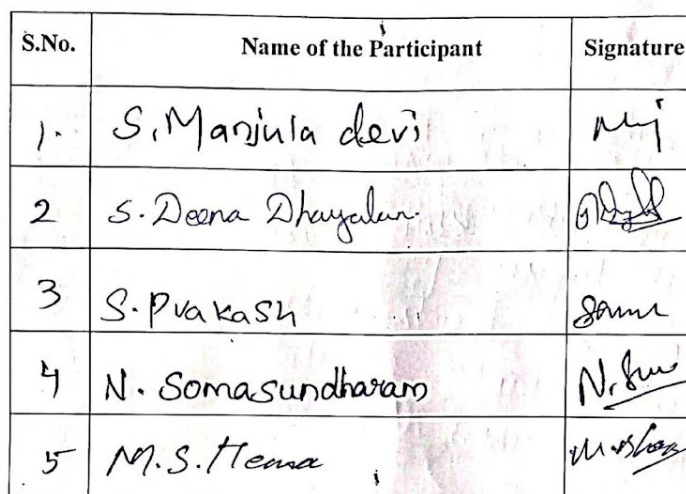 S.No. Name of the Participant Signature
1. S. Manjula devi
2 S. Deena Dhayalan.
3 S. Prakash
4 N. Somasundharam
5 M.S. Hema